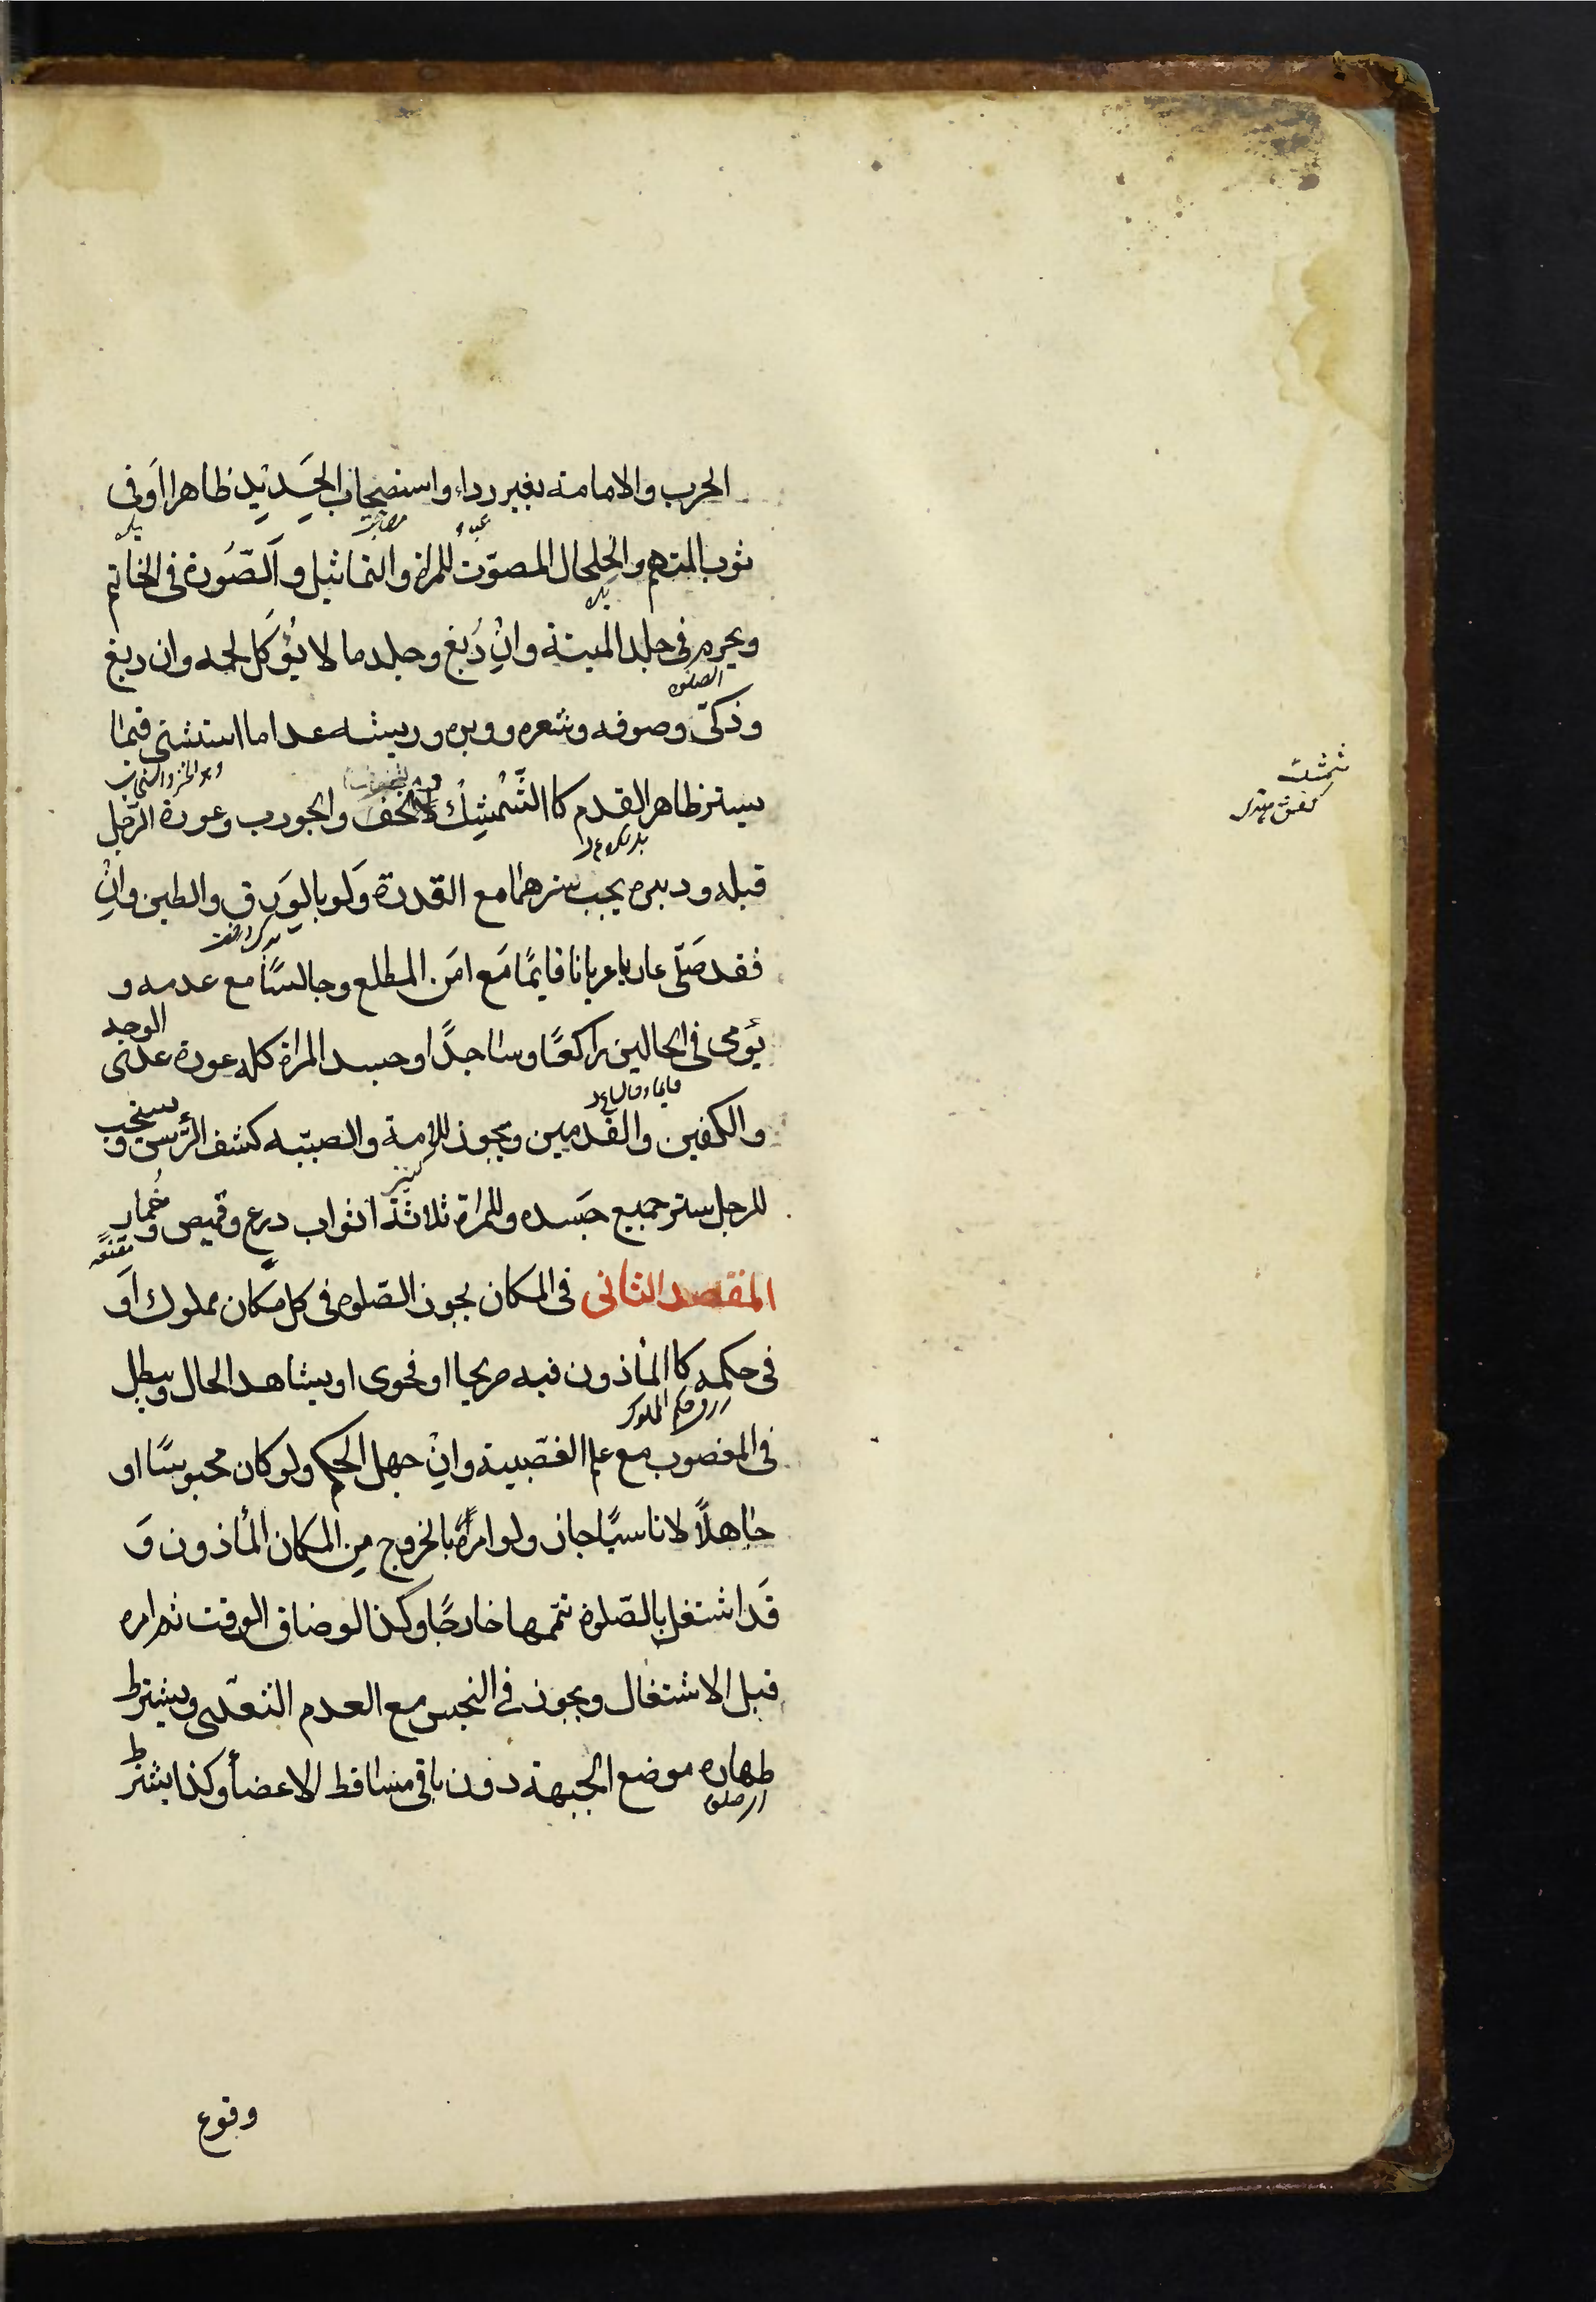 الحرب والامامة بغير رداء واستصحاب الحَدِيدِ ظاهرا اَو فى
ثوب المتهم والخلخال المصوّت للمراة والتماثيل و اَلصّورة فى الخاتم
ويحرم فى جلد الميتة وانْ دُبغ وجلد ما لا يُؤكَل لحمه وان دبغ
الصلوة
وذكّى وصوفه وشعره ووبره وريشه عدا ما استثنى فيما
يستر ظاهر القدم كا الشّمشِك والخف والجورب وعورة الرّجل
شمشك
قبله ودبره يجب سترهما مع القدرة وَلو بالوَرق والطين وانْ
فقد صَلّى عاريا عريانا قايمًا مَع امَن المطلع وجالسًا مع عدمه و
يؤمى فى الحالين راكعًا وساجدًا وجسد المراة كله عورة عدى الوجه
والكفين والقدمين ويجوز للامة والصبيّه كشف الرّس و يستحب
للرجل ستر جميع جَسده وللمراة ثلاثة اثواب درع وقميص و خُمار
مقنعه
المقصد الثانى فى المكان يجوز الصّلوه فى كل مكان مملوك اَو
فى حكمه كا المأذون فيه صريحا او فحوى او بشاهد الحال ويبطل
فى المغصوب مع علم الغصبية وانْ جهل الحكم ولو كان محبوسًا او
جاهلاً لا ناسيًا جاز ولو امرهُ بالخروج مِن المكان المأذون وَ
قَد اشتغل بالصّلوة تممها خارجًا وكذا لو ضاق الوقت ثم امره
قبل الاشتغال ويجوز فى النجس مع العدم التعدّى ويشترط
طهاره موضع الجبهة دون باقى مساقط الاعضاْ وكذا يشترط
وقوع